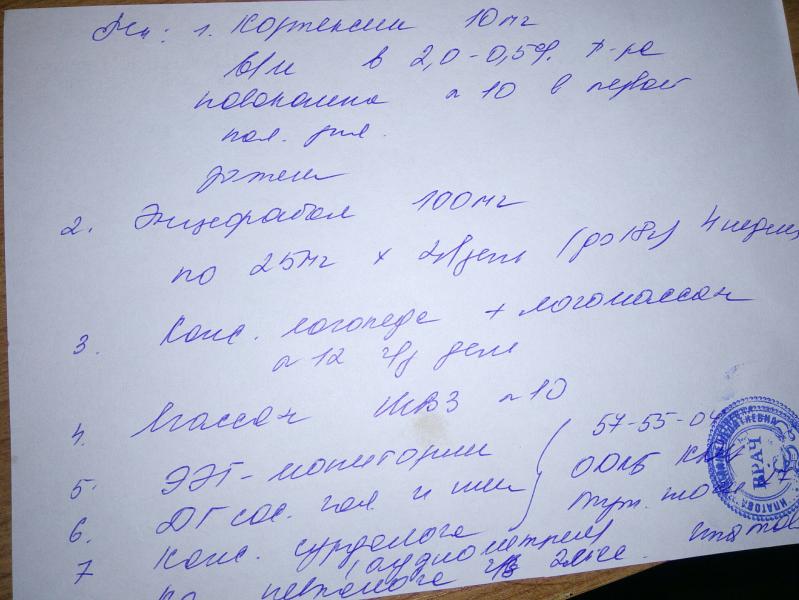 1. Кортексин 10мг
в/м в 2,0-0,5% р-ра
новокаина n 10 в первой
пол. дня.
затем
2. Энцефабол 100мг
по 25мг x 2 р/день (до 18ч) 4 недели
3. Конс. логопеда + логомассаж
n 12 ч/з день
4. Массаж ШВЗ n 10
5. ЭЭГ-мониторинг 57-55-0
6. ДГ сос. гол. и шеи ООКБ
7 Конс. сурдолога (аудиометрия)
невролога ч/з 2 мес.
ВРАЧ